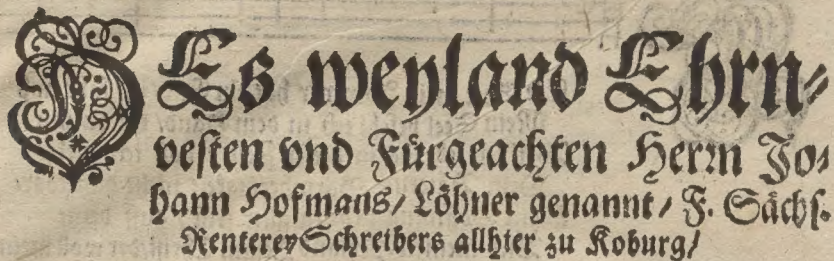 DEs weyland Ehrn⸗
vesten vnd Fürgeachten Herrn Jo⸗
hann Hofmans/ Löhner genannt/ F. Sächs.
RentereySchreibers allhier zu Koburg/